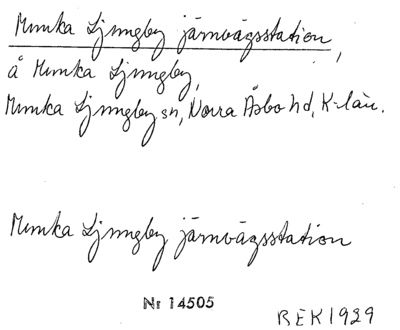 Munka Ljungby järnvägsstation,
å Munka Ljungby,
Munka Ljungby sn, Norra Åsbo hd, K-län.
Munka Ljungby järnvägsstation
Nr 14505
REK 1929